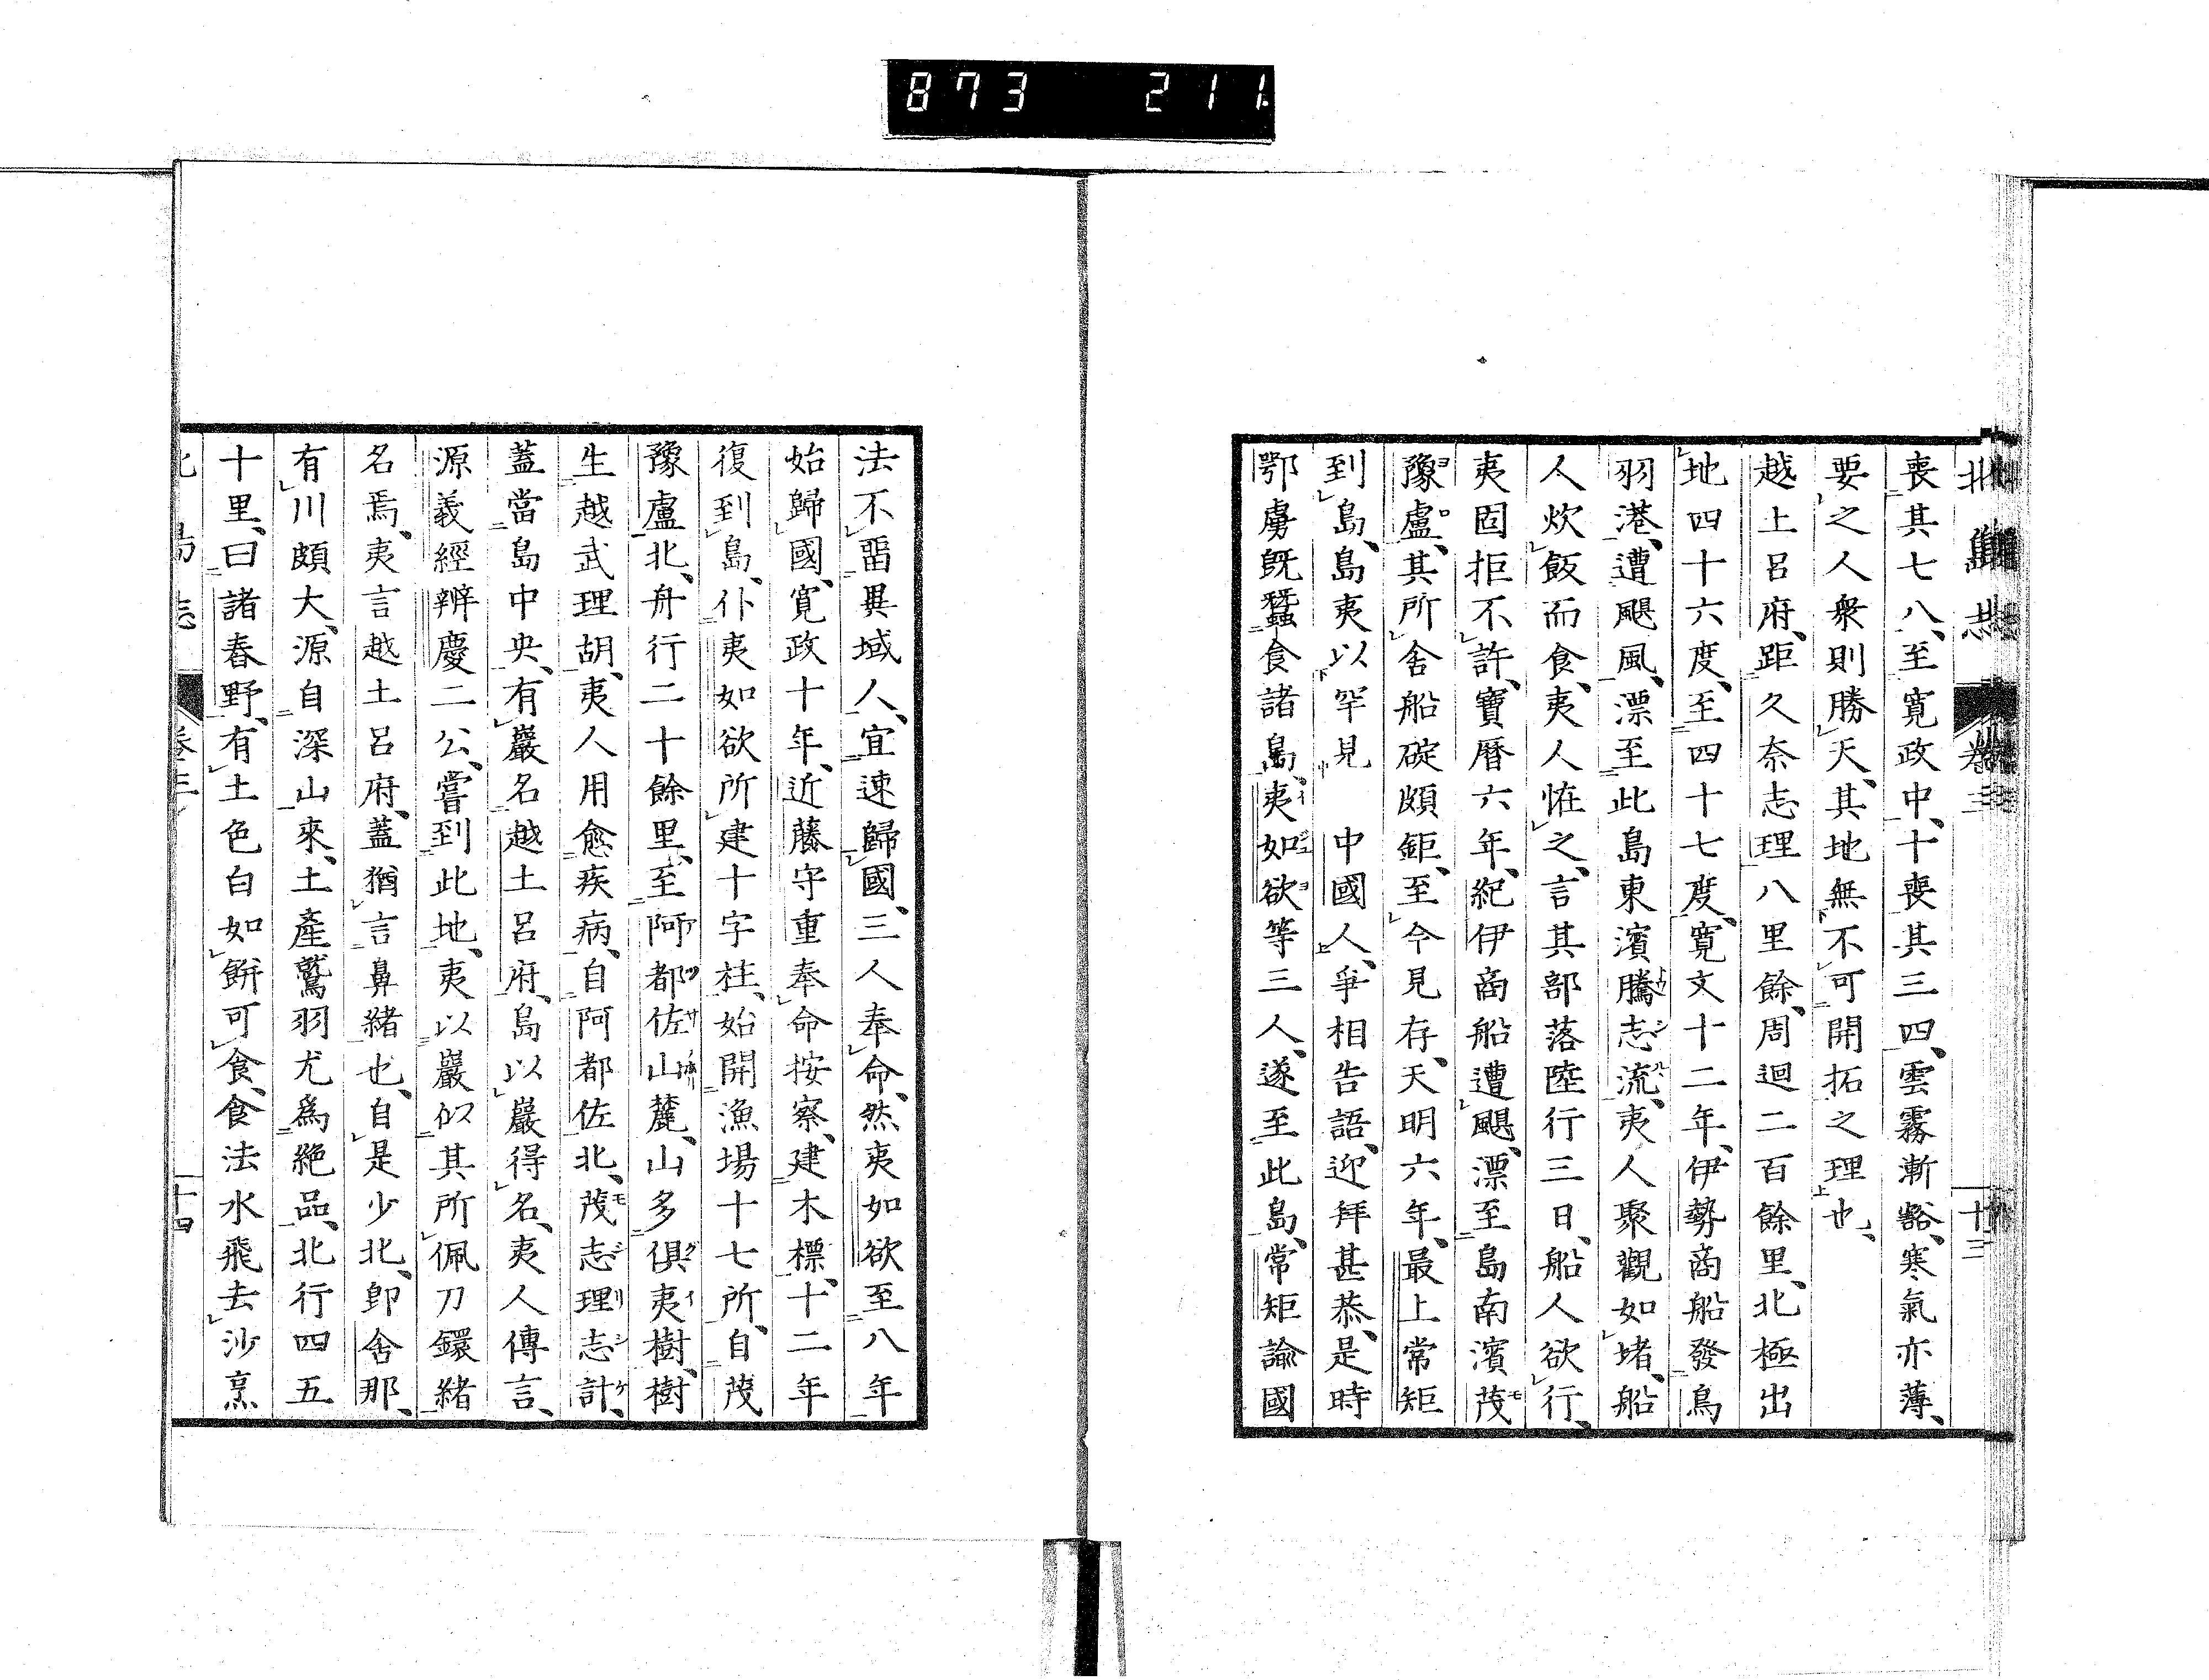 873 211
北島志 卷三 十三
喪其七八、至寬政中、十喪其三四、雲霧漸豁、寒氣亦薄、
要之人衆則勝天、其地無不可開拓之理也、
越土呂府、距久奈志理八里餘、周迴二百餘里、北極出
地四十六度、至四十七度、寬文十二年、伊勢商船發鳥
羽港、遭颶風、漂至此島東濱騰志流、夷人聚觀如堵、船
人炊飯而食、夷人恠之、言其部落陸行三日、船人欲行、
夷固拒不許、寶曆六年、紀伊商船遭颶、漂至島南濱茂
豫盧、其所舍船碇頗鉅、至今見存、天明六年、最上常矩
到島、島夷以罕見 中國人、爭相告語、迎拜甚恭、是時
鄂虜既蠶食諸島、夷如欲等三人、遂至此島、常矩諭國
法不畱異域人、宜速歸國、三人奉命、然夷如欲至八年
始歸國、寬政十年、近藤守重奉命按察、建木標、十二年
復到島、仆夷如欲所建十字柱、始開漁場十七所、自茂
豫盧北、舟行二十餘里、至阿都佐山麓、山多俱夷樹、樹
生越武理胡、夷人用愈疾病、自阿都佐北、茂志理志計、
蓋當島中央、有巖名越土呂府、島以巖得名、夷人傳言、
源義經辨慶二公、嘗到此地、夷以巖似其所佩刀鐶緒
名焉、夷言越土呂府、蓋猶言鼻緒也、自是少北、卽舍那、
有川頗大、源自深山來、土產鷲羽尤爲絶品、北行四五
十里、曰諸春野、有土色白如餅可食、食法水飛去沙烹
北島志 卷三 十四